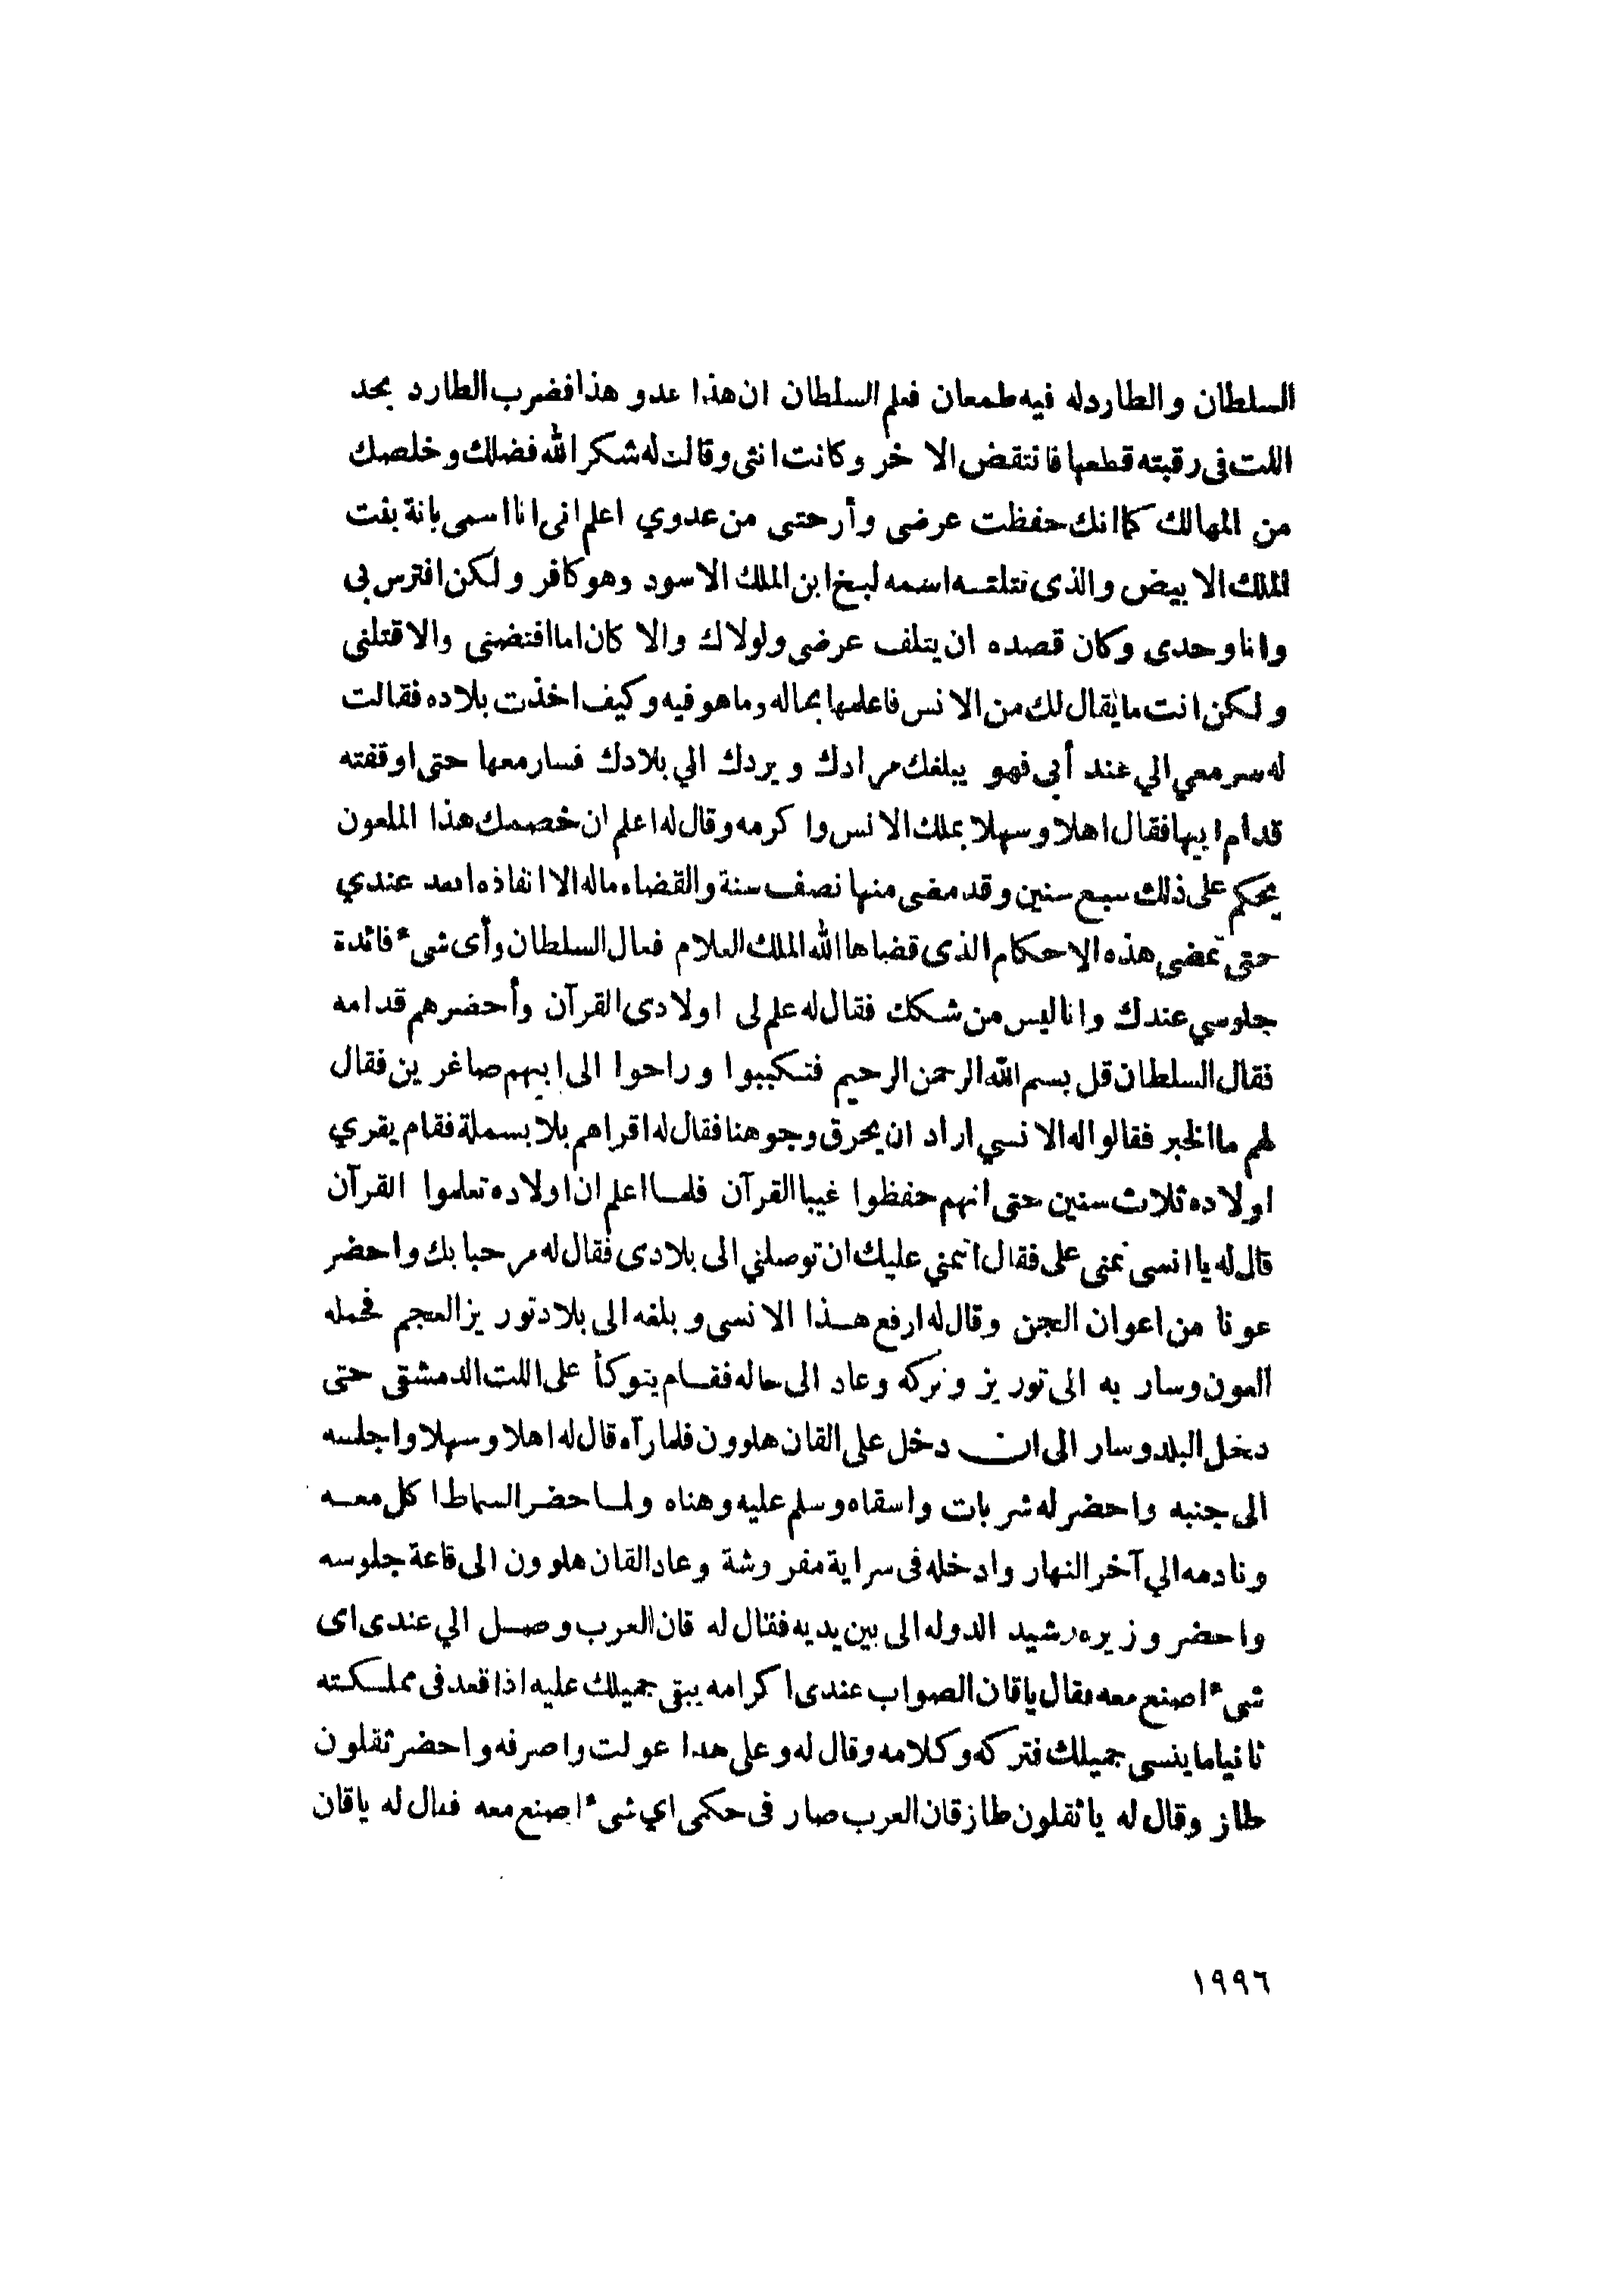 السلطان والطارد له فيه طمعان فعلم السلطان ان هذا عدو هذا فضرب الطارد بحد
اللت فى رقبته قطعها فانتقض الا خر وكانت انثى وقالت له شكر الله فضلك وخلصك
من المهالك كما انك حفظت عرضى وأرحتى من عدوي اعلم انى انا اسمى بانة بنت
الملك الابيض والذى قتلته اسمه لبخ ابن الملك الاسود وهو كافر ولكن افترس بى
وانا وحدى وكان قصده ان يتلف عرضى ولولاك والا كان اما افتضنى والا قتلنى
ولكن انت ما يقال لك من الانس فاعلمها بحاله وما هو فيه وكيف اخذت بلاده فقالت
له سر معي الي عند أبى فهو يبلغك مرادك ويردك الي بلادك فسار معها حتى اوقفته
قدام ابيها فقال اهلا وسهلا بملك الانس واكرمه وقال له اعلم ان خصمك هذا الملعون
يحكم على ذلك سبع سنين وقد مضى منها نصف سنة والقضاء ماله الا انفاذه اقعد عندي
حتى تمضى هذه الاحكام الذى قضاها الله الملك العلام فقال السلطان وأى شىء فائدة
جلوسي عندك وانا ليس من شكك فقال له علم لى اولادى القرآن وأحضرهم قدامه
فقال السلطان قل بسم الله الرحمن الرحيم فتكببوا وراحوا الى ابيهم صاغرين فقال
لهم ما الخبر فقالوا له الانسي اراد ان يحرق وجوهنا فقال له اقراهم بلا بسملة فقام يقري
اولاده ثلاث سنين حتى انهم حفظوا غيبا القرآن فلما اعلم ان اولاده تعلموا القرآن
قال له يا انسى تمنى على فقال اتمني عليك ان توصلني الى بلادى فقال له مرحبا بك واحضر
عونا من اعوان الجن وقال له ارفع هذا الانسى وبلغه الى بلاد توريز العجم فحمله
العون وسار به الى توريز وتركه وعاد الى حاله فقام يتوكأ على اللت الدمشقى حتى
دخل البلد وسار الى ان دخل على القان هلوون فلما رآه قال له اهلا وسهلا واجلسه
الى جنبه واحضر له شربات واسقاه وسلم عليه وهناه ولما حضر السماط اكل معه
ونادمه الي آخر النهار وادخله فى سراية مفروشة وعاد القان هلوون الى قاعة جلوسه
واحضر وزيره رشيد الدوله الى بين يديه فقال له قان العرب وصل الي عندى اى
شىء اصنع معه فقال ياقان الصواب عندى اكرامه يبقى جميلك عليه اذا قعد فى مملكته
ثانيا ما ينسى جميلك فتركه وكلامه وقال له وعلى هدا عولت واصرفه واحضر ثقلون
طاز وقال له يا ثقلون طاز قان العرب صار فى حكمى اي شىء اصنع معه فقال له ياقان
١٩٩٦